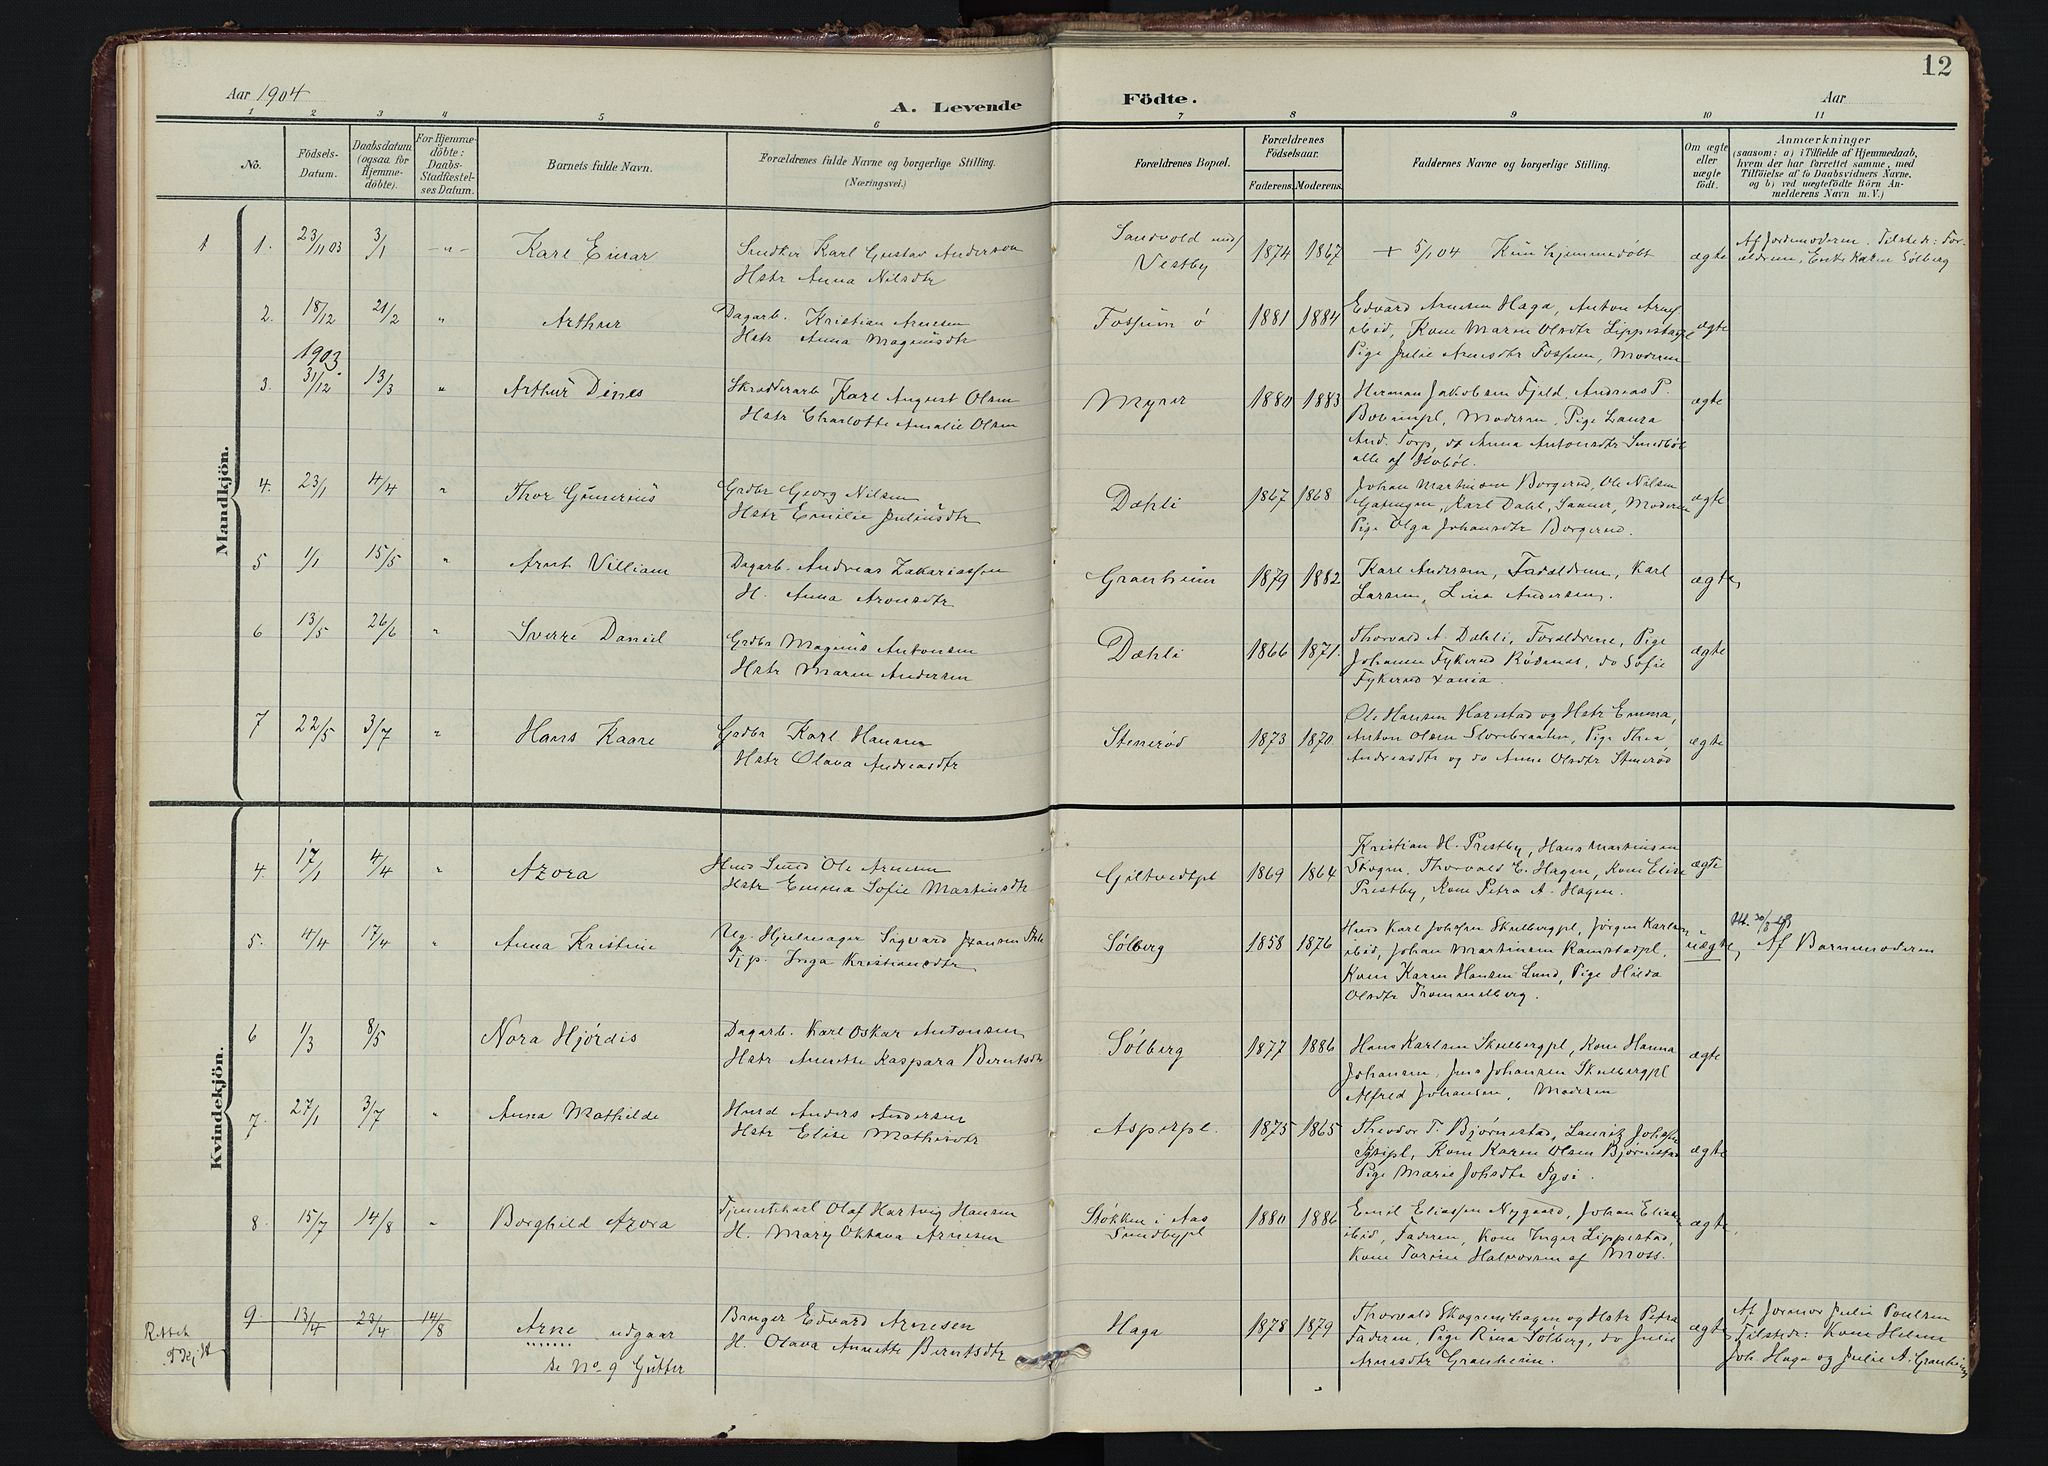 12
Aar 1904
A. Levende
Födte.
Aar
1 2 3 4 5 6 7 8 9 10 11
No.
Födsels-Datum.
Daabsdatum (ogsaa for Hjemmedöbte).
For Hjemmedöbte: Daabs-Stadfæstelses Datum.
Barnets fulde Navn.
Forældrenes fulde Navne og borgerlige Stilling. (Næringsvei.)
Forældrenes Bopæl.
Forældrenes Födselsaar.
Faderens. Moderens.
Faddernes Navne og borgerlige Stilling.
Om ægte eller uægte födt.
Anmærkninger
(saasom: a) i Tilfælde af Hjemmedaab,
hvem der har forrettet samme, med
Tilföielse af to Daabsvidners Navne,
og b) ved uægtefödte Börn An-
melderens Navn m. V.)
Mandkjön.
1 1. 23/11 03 3/1 -"- Karl Einar
Snedker Karl Gustav Anderson
Hstr Anna Nilsdtr
Sandvold
Vestby
1874 1867 + 5/1 04 Kun hjemmedøbt ægte
Af Jordemoderen. Tilstede: For-
ældrene, Enke Karen Sølberg
2. 18/12 1903 21/2 " Arthur
Dagarb. Kristian Arnesen
Hstr Anna Magnusdtr
Fossum ø 1881 1884
Edvard Arnesen Haga, Anton Arnes
ibid, Kone Maren Olsdtr Lippestad
Pige Julie Arnesdtr Fossum, Moderen
ægte
3. 31/12 13/3 " Arthur Dines
Skrædderarb Karl August Olsen
Hstr Charlotte Amalie Olsen
Myrer 1880 1883
Herman Jakobsen Fjeld, Andreas P.
Moderen, Pige Laura
And. Torp, do Anna Antonsdtr Smedbøl
alle af Hobøl.
ægte
4. 23/1 4/4 " Thor Gunerius
Grdbr Georg Nilsen
Hstr Emilie Juliusdtr
Dæhli 1867 1868
Johan Martinsen Borgerud, Ole Nilsen
Karl Dahl, Sanner, Moderen
Pige Olga Johansdtr Borgerud.
ægte
5 1/1 15/5 " Arnt Villiam
Dagarb. Andreas Zakariassen
H. Anna Aronsdtr
Granheim 1879 1882
Karl Andersen, Forældrene, Karl
Larsen, Lina Andersen.
ægte
6 13/5 26/6 " Sverre Daniel
Grdbr Magnus Antonsen
Hstr Maren Andersen
Dæhli 1866 1871.
Thorvald A. Dæhli, Forældrene, Pige
Johanne Fykerud Rødenes, do Sofie
Fykerud
ægte
7 22/5 3/7 " Hans Kaare
Grdbr Karl Hansen
Hstr Olava Andreasdtr
Stenerød 1873 1870.
Ole Hansen Harestad og Hstr Emma,
Anton Olsen Storebraaten, Pige Thea
Andreasdtr og do Anne Olsdtr Stenerød
ægte
Kvindekjön.
4. 17/1 4/4 " Azora
Husm Smed Ole Arnesen
Hstr Emma Sofie Martinsdtr
Giltvedtpl 1869 1864
Kristian H. Prestby, Hans Martinsen
Skogen, Thorvald E. Hagen, Kone Elise
Prestby, Kone Petra A. Hagen.
ægte
5. 4/4 17/4 " Anna Kristine
Ug. Hjulmager Sigvard Hansen
Pige Inga Kristiansdtr
Sølberg 1858 1876
Husm Karl Johansen Skulbergpl, Jørgen Karlsen
ibid, Johan Martinsen Ramstadpl,
Kone Karen Hansen Lund, Pige Hilda
Olsdtr Trommelberg.
uægte
Af Barnemoderen
6 1/3 8/5 Nora Hjørdis
Dagarb. Karl Oskar Antonsen
Hstr Annette Kaspara Berntsdtr
Sølberg 1877 1886
Hans Karlsen Skulbergpl, Kone Hanna
Johansen, Jens Johansen Skulbergpl
Alfred Johansen, Moderen
ægte
7. 27/1 3/7 " Anna Mathilde
Husm Anders Andersen
Hstr Elise Mathisdtr
Asperpl. 1875 1865
Theodor T. Bjørnestad, Lauritz Johsen
Kone Karen Olsen Bjørnestad
Pige Marie Johsdtr
ægte
8. 15/7 14/8 " Borghild Azora
Tjenestekarl Olaf Hartvig Hansen
H. Mary Oktava Arnesen
Støkken i Aas
Sundbypl
1880 1886
Emil Eliassen Nygaard, Johan Eliasen
ibid, Faderen, Kone Inger Lippestad,
Kone Torine Halvorsen af Moss.
ægte
9. 13/4 23/4 14/8 Arne udgaar
se No. 9 Gutter
Bruger Edvard Arnesen
H. Olava Annette Berntsdtr
Haga 1878 1879
Thorvald Skogrenhagen og Hstr Petra
Faderen, Pige Rina Sølberg, do Julie
Arnesdtr Granheim.
ægte
Af Jormor Julie Paulsen
Tilstede: Kone Helene
Joh. Haga og Julie A. Granheim